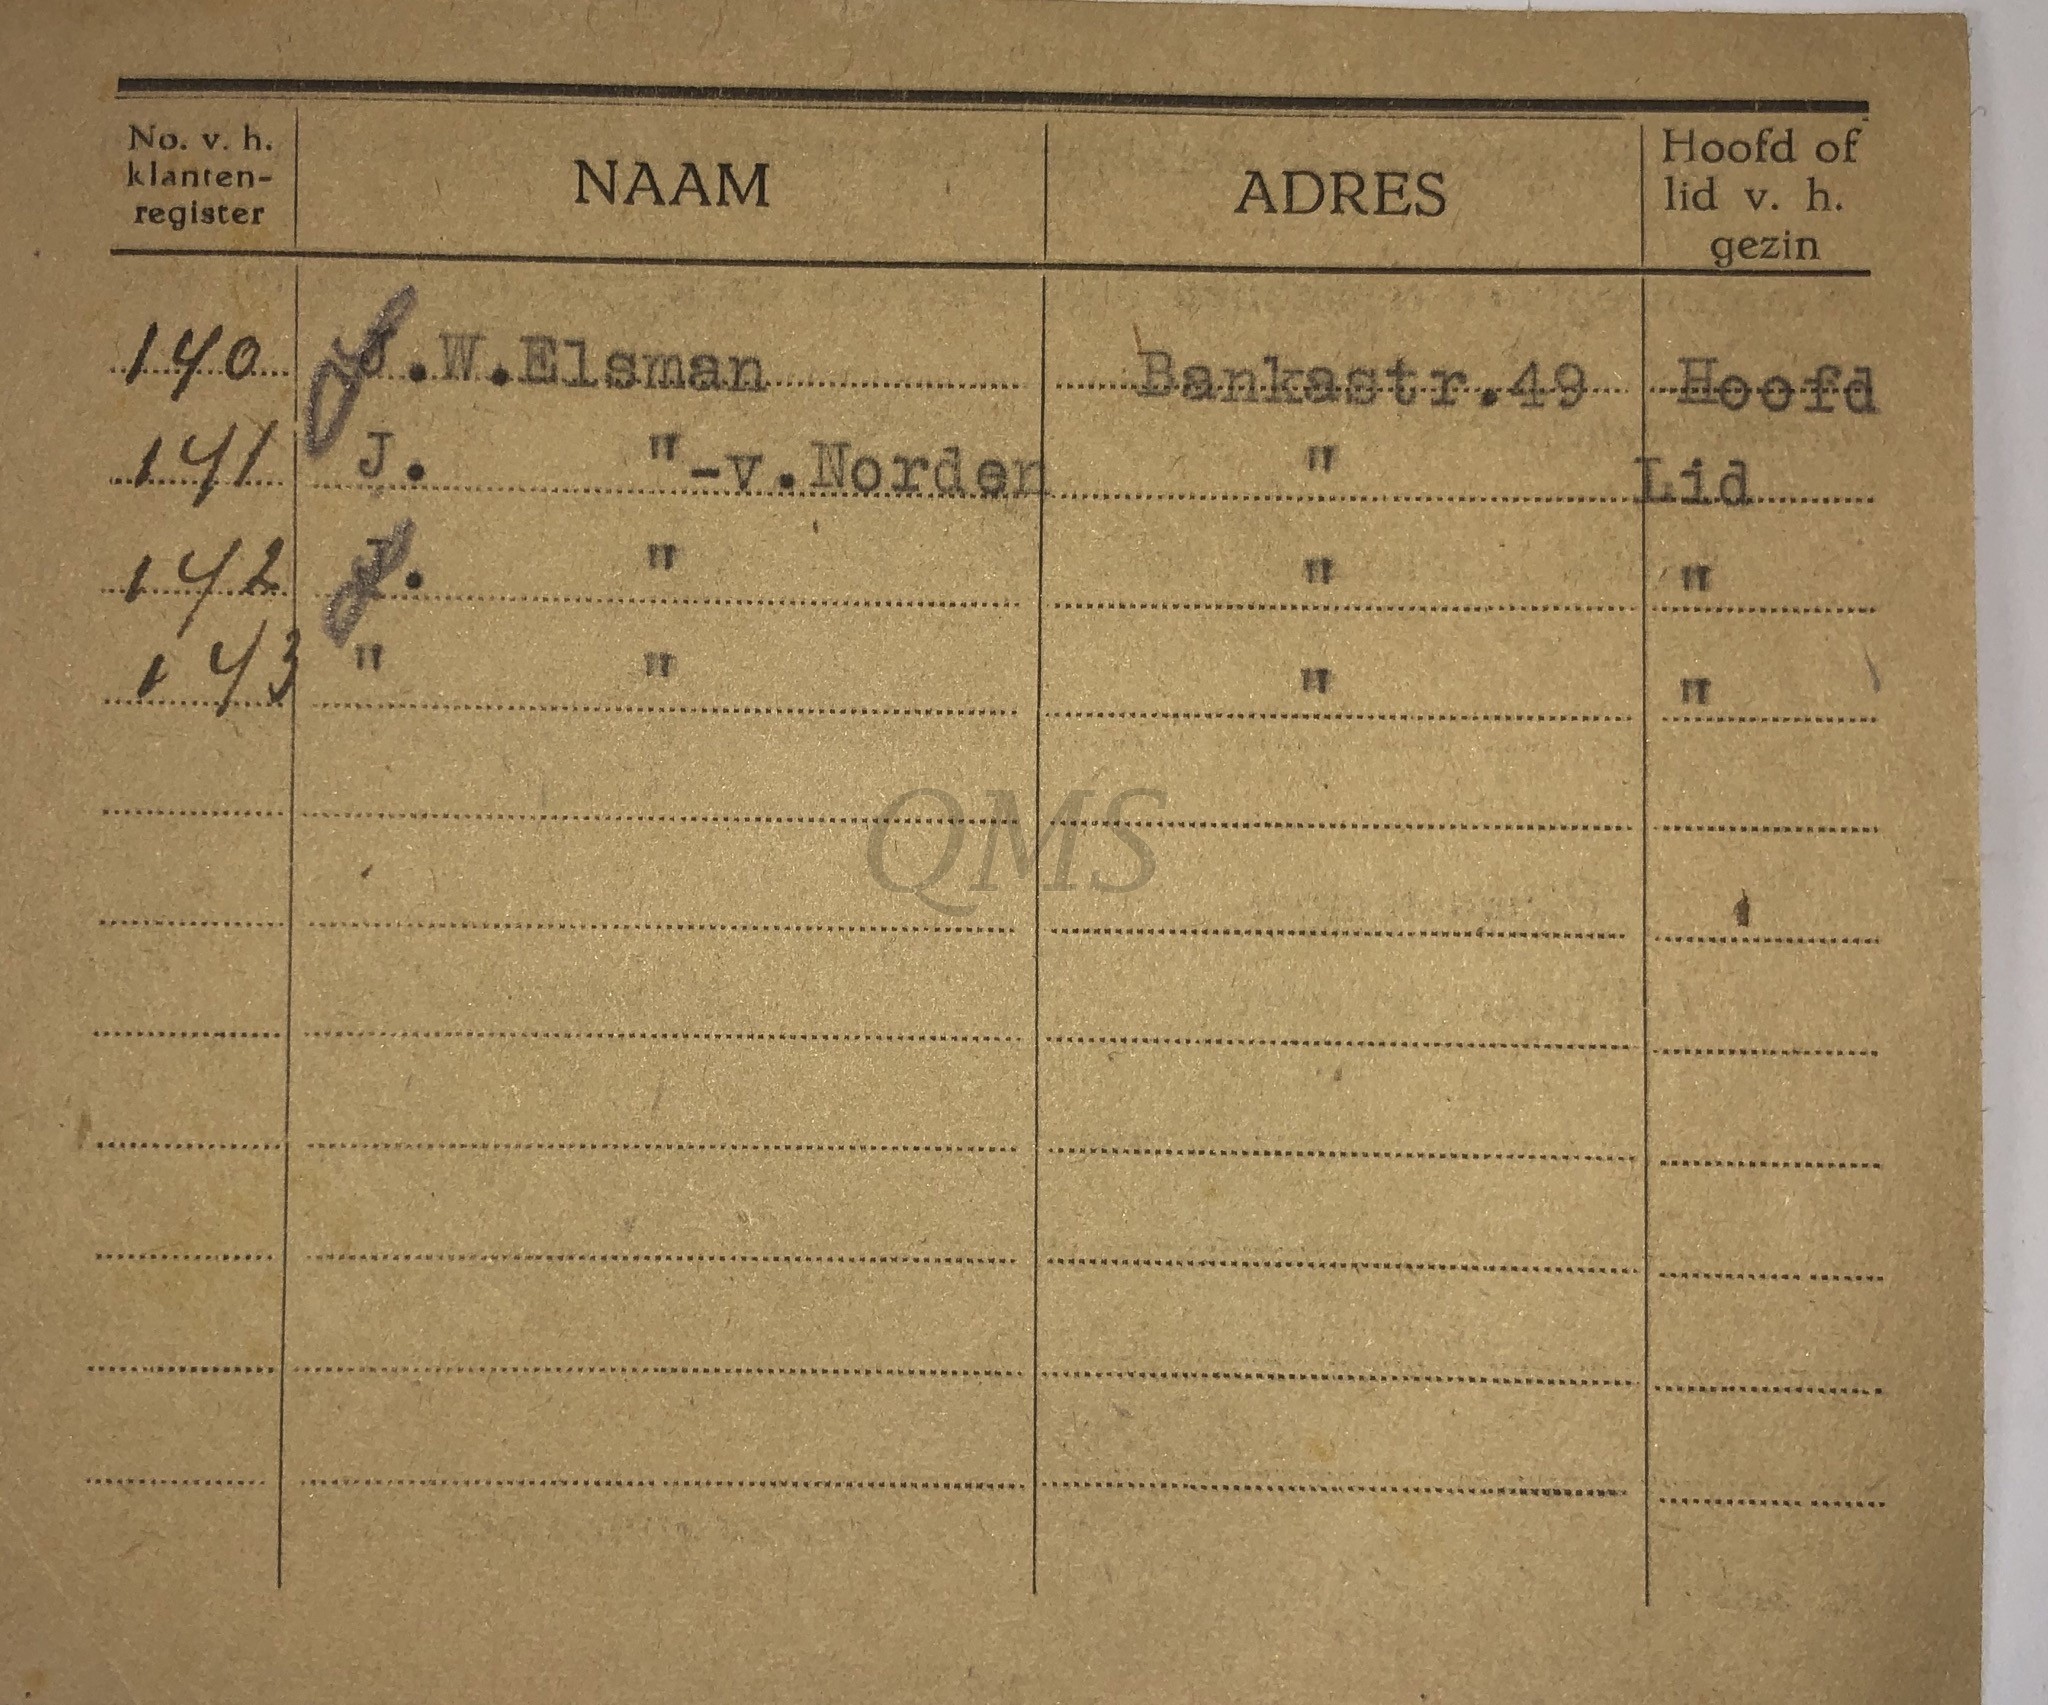 No. v. h. klanten- register NAAM ADRES Hoofd of lid v. h. gezin
140 J.W.Elsman Bankastr.49 Hoofd
141 J. "-v.Norden " Lid
142 J. " " "
143 " " " "
QMS